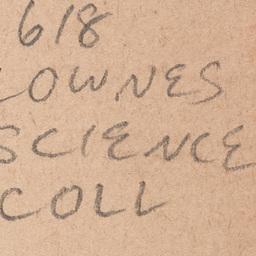 618
LOWNES
SCIENCE
COLL